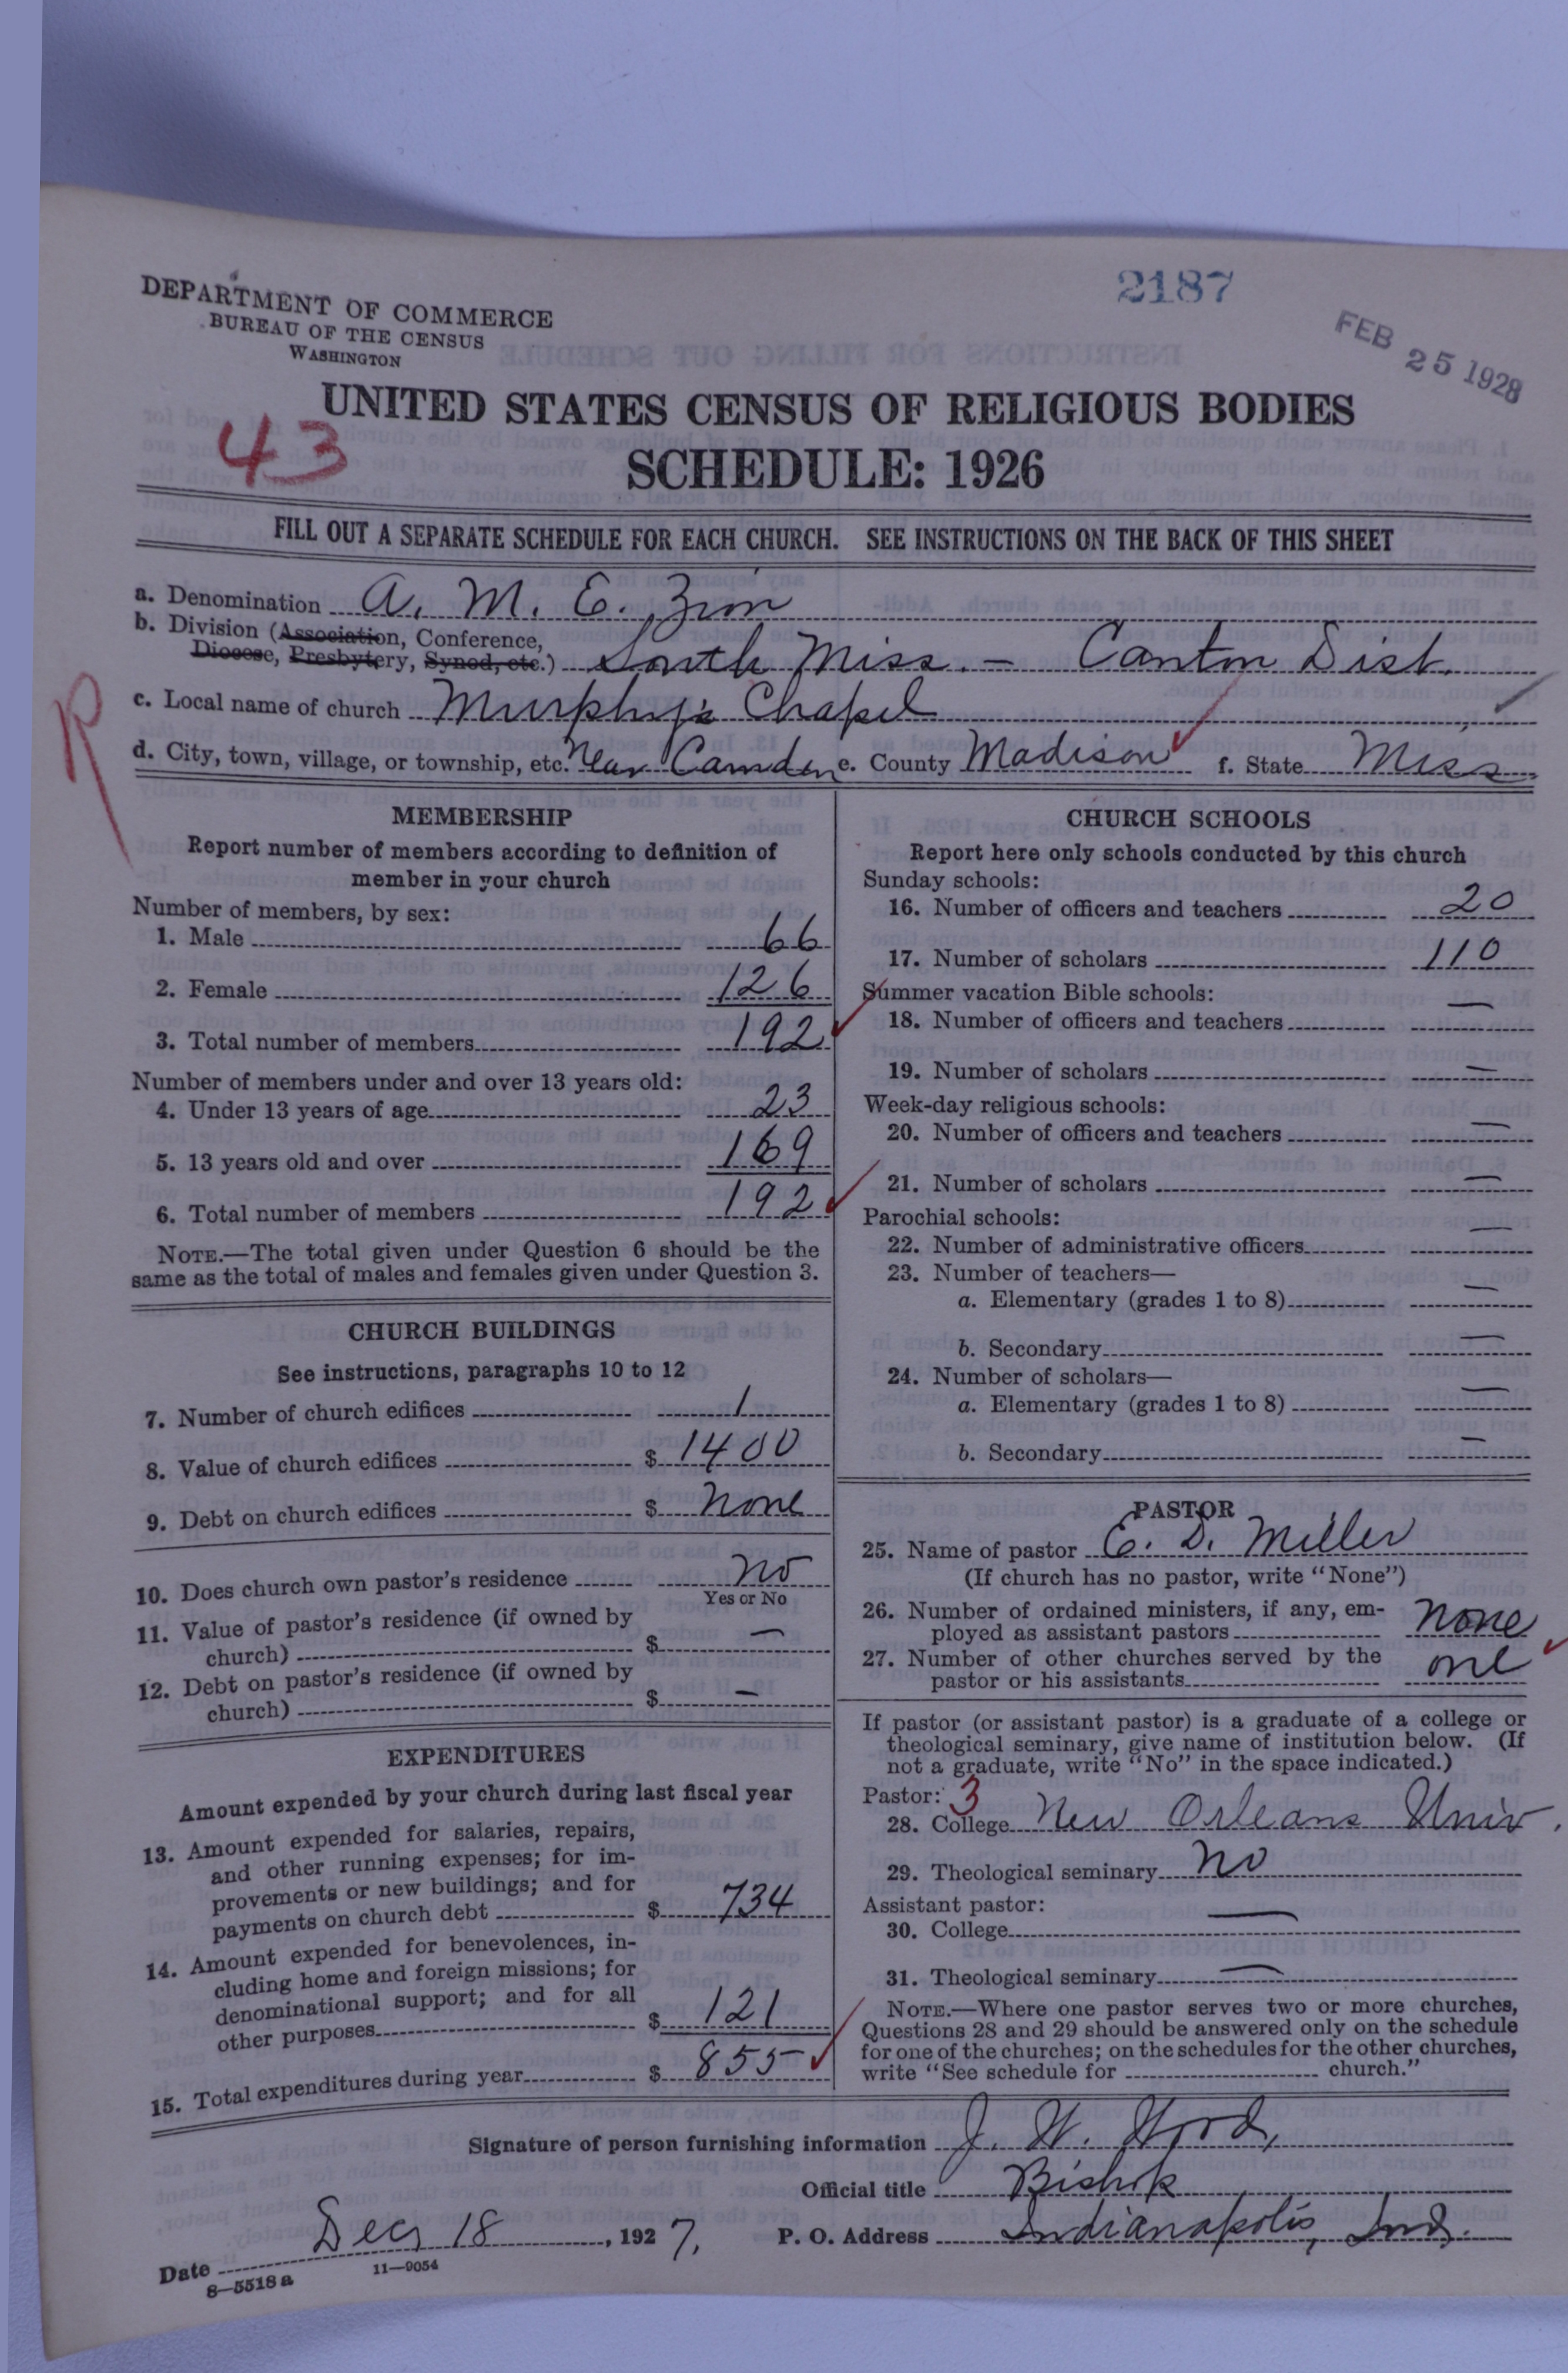 DEPARTMENT OF COMMERCE
BUREAU OF THE CENSUS
WASHINGTON
2187
FEB 25 1928
UNITED STATES CENSUS OF RELIGIOUS BODIES
43
SCHEDULE: 1926
FILL OUT A SEPARATE SCHEDULE FOR EACH CHURCH. SEE INSTRUCTIONS ON THE BACK OF THIS SHEET
a. Denomination A. M. E. Zion
b. Division (Association, Conference,
Diocese, Presbytery, Synod, etc.) South Miss. - Canton Dist.
R
c. Local name of church Murphy's Chapel
d. City, town, village, or township, etc. Near Camden e. County Madison f. State Miss
MEMBERSHIP
Report number of members according to definition of
member in your church
Number of members, by sex:
1. Male 66
2. Female 126
3. Total number of members 192
Number of members under and over 13 years old:
4. Under 13 years of age 23
5. 13 years old and over 169
6. Total number of members 192
NOTE.—The total given under Question 6 should be the
same as the total of males and females given under Question 3.
CHURCH BUILDINGS
See instructions, paragraphs 10 to 12
7. Number of church edifices 1
8. Value of church edifices $ 1400
9. Debt on church edifices $ none
10. Does church own pastor's residence no
Yes or No
11. Value of pastor's residence (if owned by
church) $ —
12. Debt on pastor's residence (if owned by
church) $ —
EXPENDITURES
Amount expended by your church during last fiscal year
13. Amount expended for salaries, repairs,
and other running expenses; for im-
provements or new buildings; and for
payments on church debt $ 734
14. Amount expended for benevolences, in-
cluding home and foreign missions; for
denominational support; and for all
other purposes $ 121
15. Total expenditures during year $ 855
CHURCH SCHOOLS
Report here only schools conducted by this church
Sunday schools:
16. Number of officers and teachers 20
17. Number of scholars 110
Summer vacation Bible schools:
18. Number of officers and teachers —
19. Number of scholars —
Week-day religious schools:
20. Number of officers and teachers —
21. Number of scholars —
Parochial schools:
22. Number of administrative officers —
23. Number of teachers—
a. Elementary (grades 1 to 8) —
b. Secondary —
24. Number of scholars—
a. Elementary (grades 1 to 8) —
b. Secondary —
PASTOR
25. Name of pastor E. D. Miller
(If church has no pastor, write "None")
26. Number of ordained ministers, if any, em-
ployed as assistant pastors none
27. Number of other churches served by the
pastor or his assistants one
If pastor (or assistant pastor) is a graduate of a college or
theological seminary, give name of institution below. (If
not a graduate, write "No" in the space indicated.)
Pastor: 3
28. College New Orleans Univ.
29. Theological seminary no
Assistant pastor:
30. College —
31. Theological seminary —
NOTE.—Where one pastor serves two or more churches,
Questions 28 and 29 should be answered only on the schedule
for one of the churches; on the schedules for the other churches,
write "See schedule for church."
Signature of person furnishing information J. W. Wood,
Official title Bishop
Date Dec 18, 1927. P. O. Address Indianapolis, Ind.
8—5518 a 11—9054